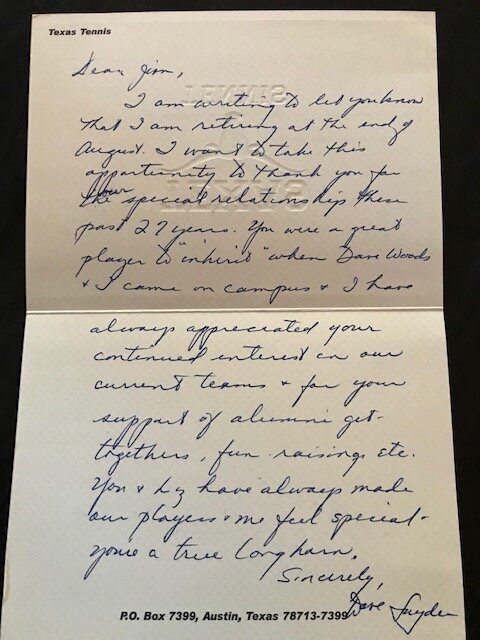 Texas Tennis
Dear Jim,
I am writing to let you know
that I am retiring at the end of
August. I want to take this
opportunity to thank you for
our
the special relationship these
past 27 years. You were a great
player to "inherit" when Dave Woods
& I came on campus & I have
always appreciated your
continued interest in our
current teams & for your
support of alumni get-
togethers, fun raisings etc.
You & Liz have always made
our players & me feel special -
you're a true Longhorn.
Sincerely,
Dave Snyder
P.O. Box 7399, Austin, Texas 78713-7399